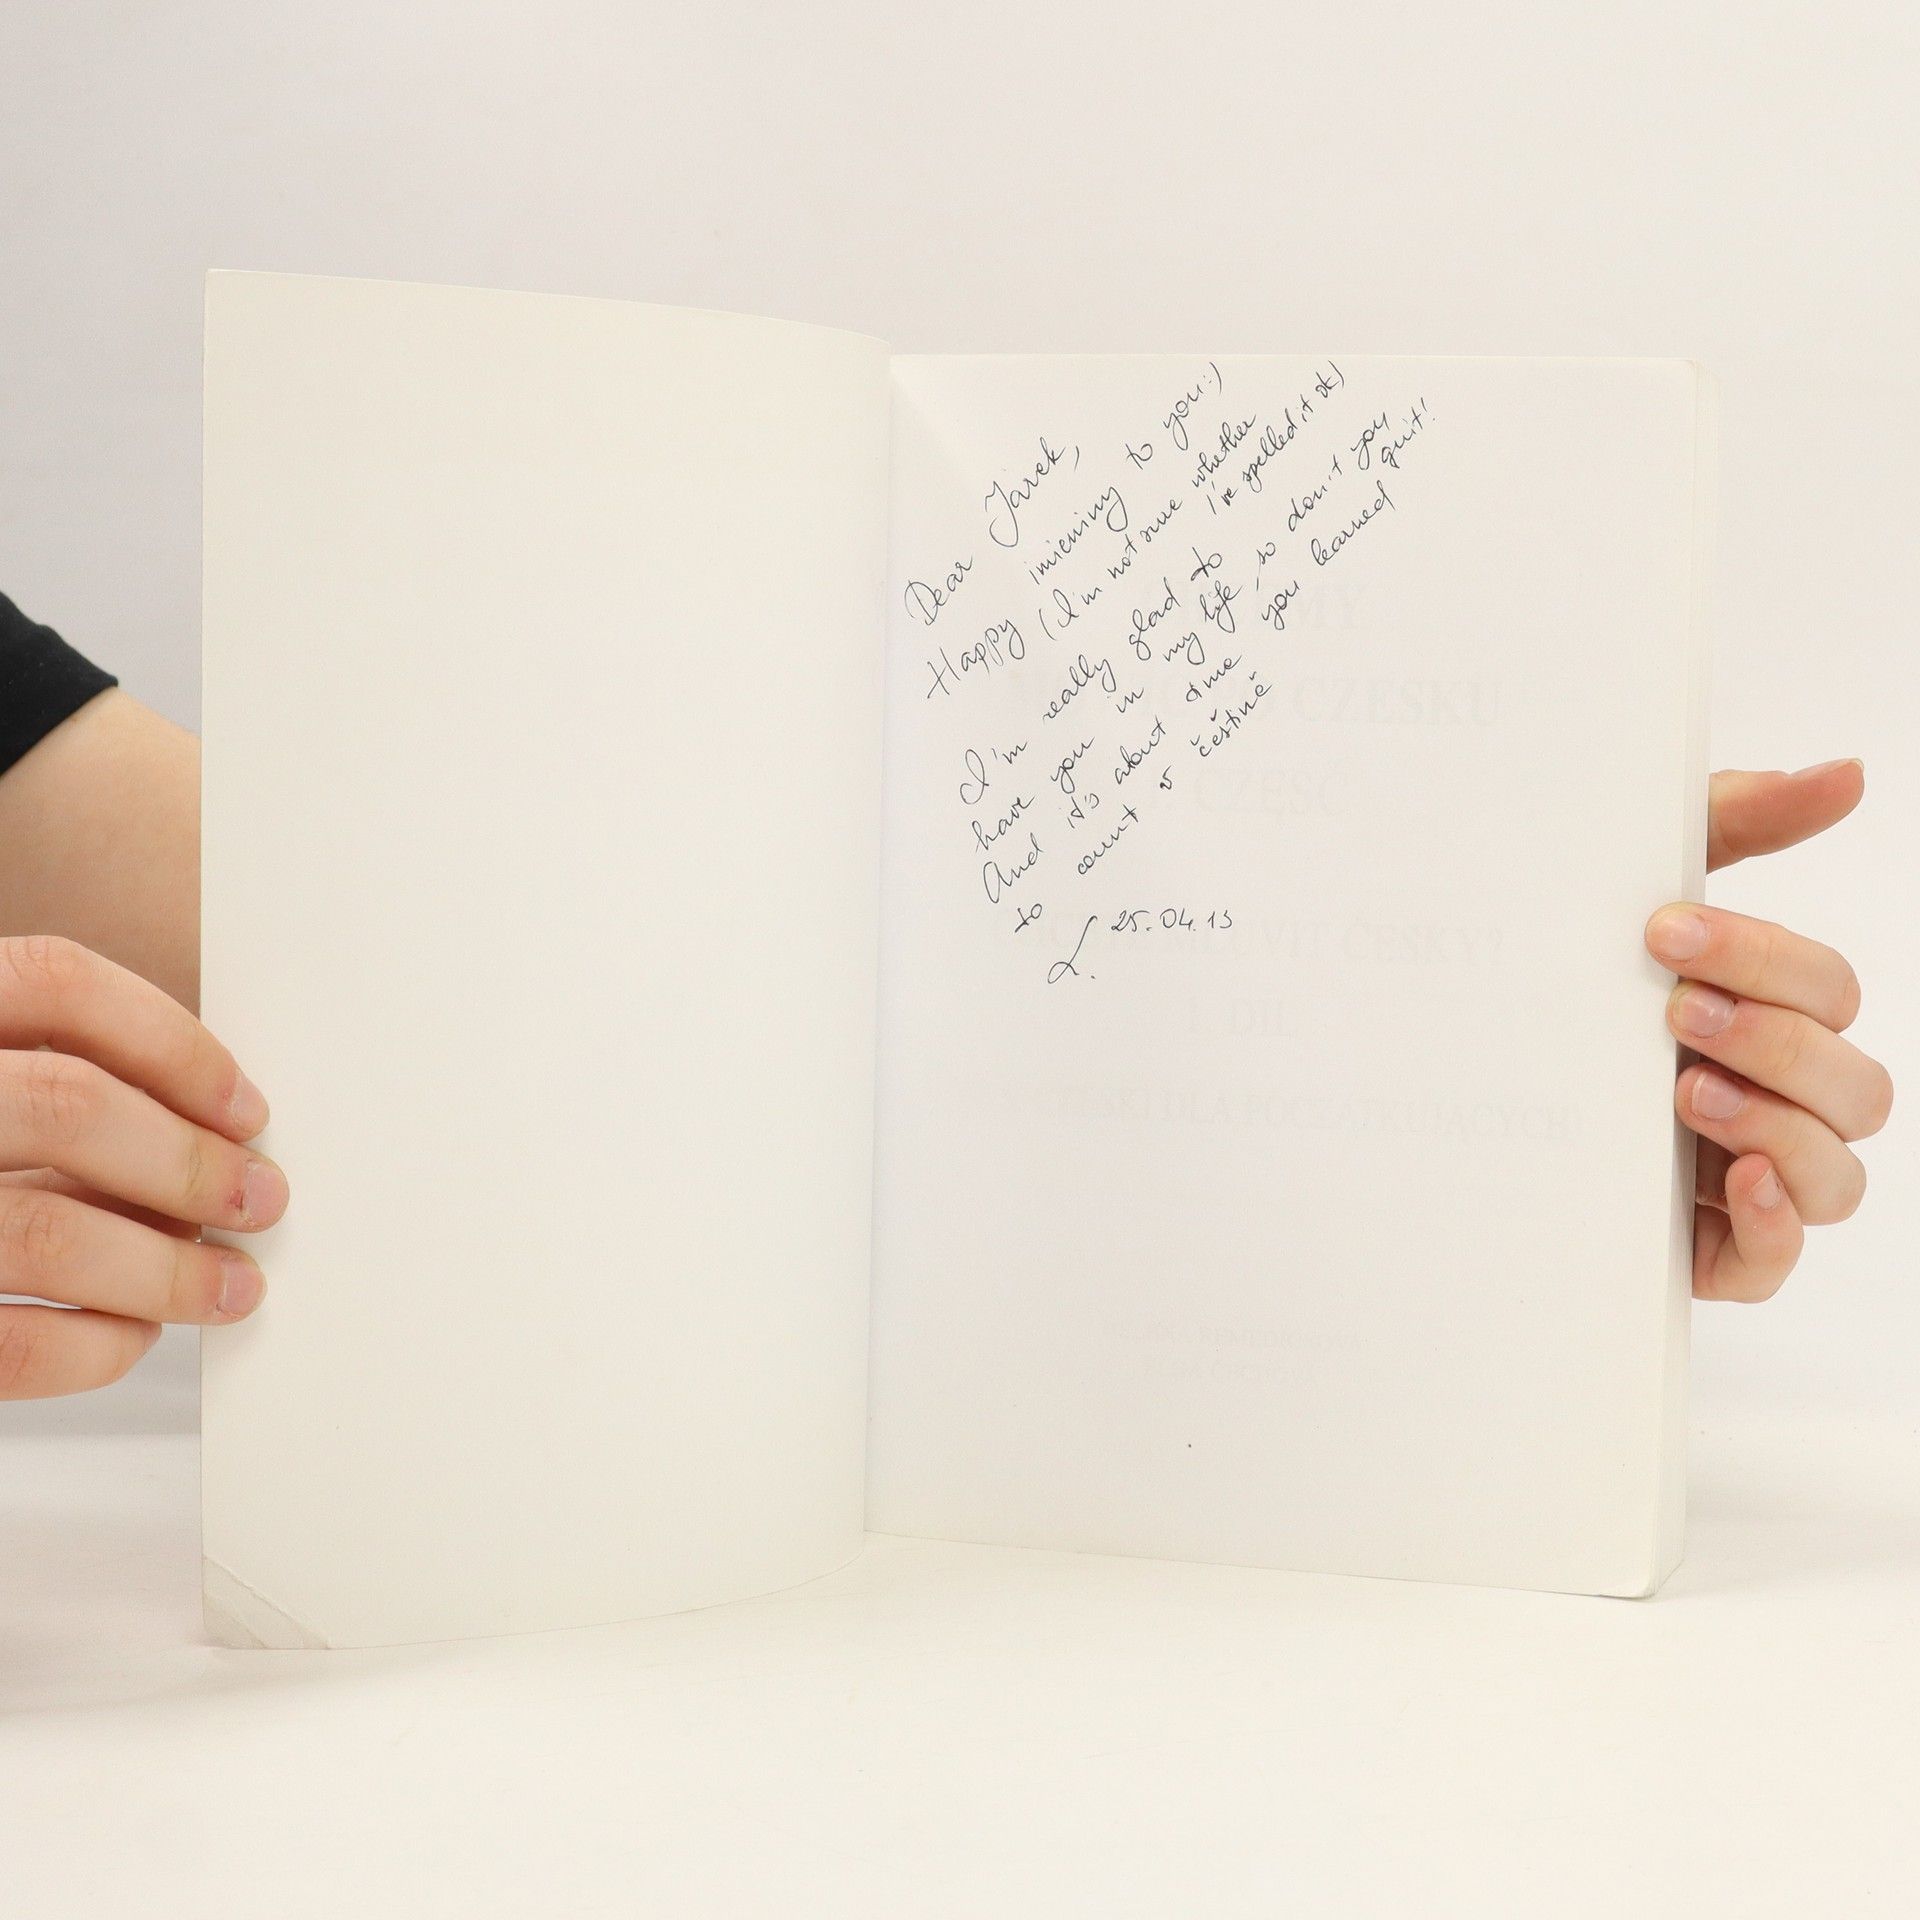 Dear Jarek,
Happy imieniny to you :)
(I'm not sure whether
I've spelled it ok)
I'm really glad to
have you in my life, so don't you
quit!
And it's about time you learned
to count v češtině
L. 25.04.13
MY
CZESKU
ČESKY"
I. DÍL